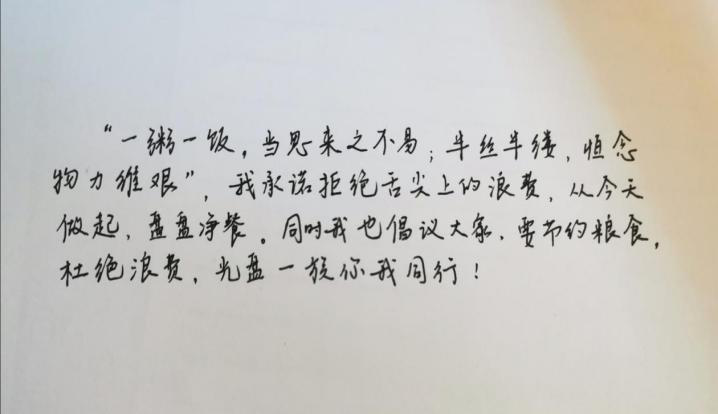 “一粥一饭，当思来之不易；半丝半缕，恒念
物力维艰”，我承诺拒绝舌尖上的浪费，从今天
做起，盘盘净餐。同时我也倡议大家，要节约粮食，
杜绝浪费，光盘一族你我同行！